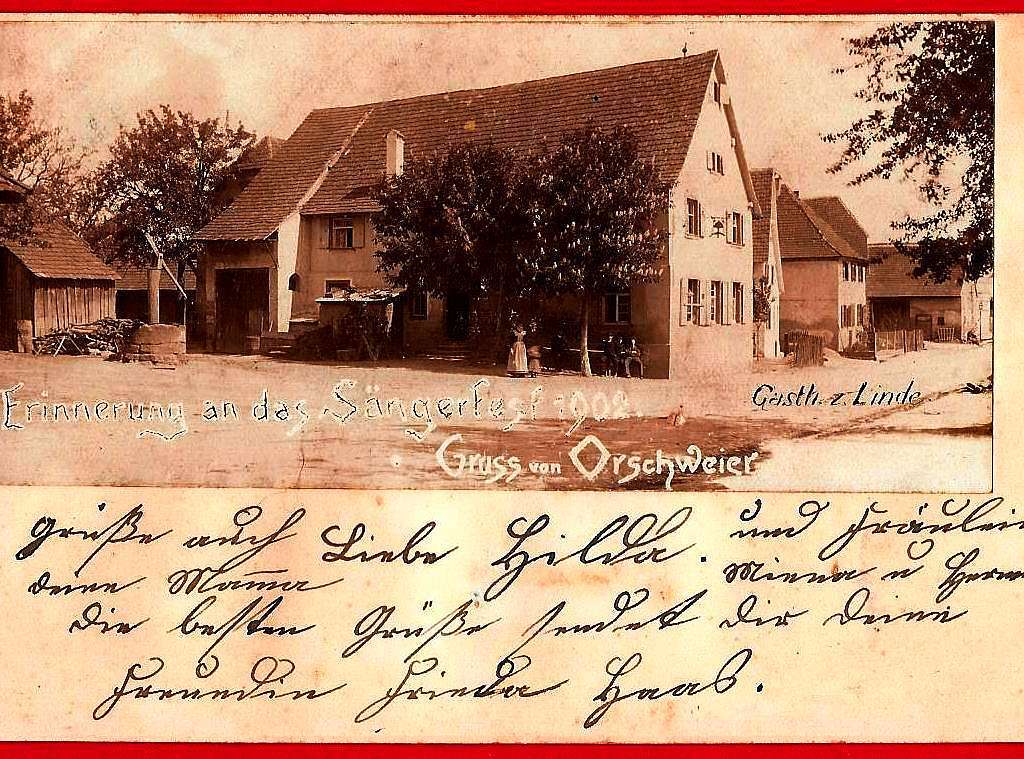 Erinnerung an das Sängerfest 1902.
Gasth. z. Linde
Gruss von Orschweier
Liebe Hilda.
die besten Grüße sendet dir deine
Freundin Frieda Haas.
grüße auch
deine Mama
und Fräulein
Minna u